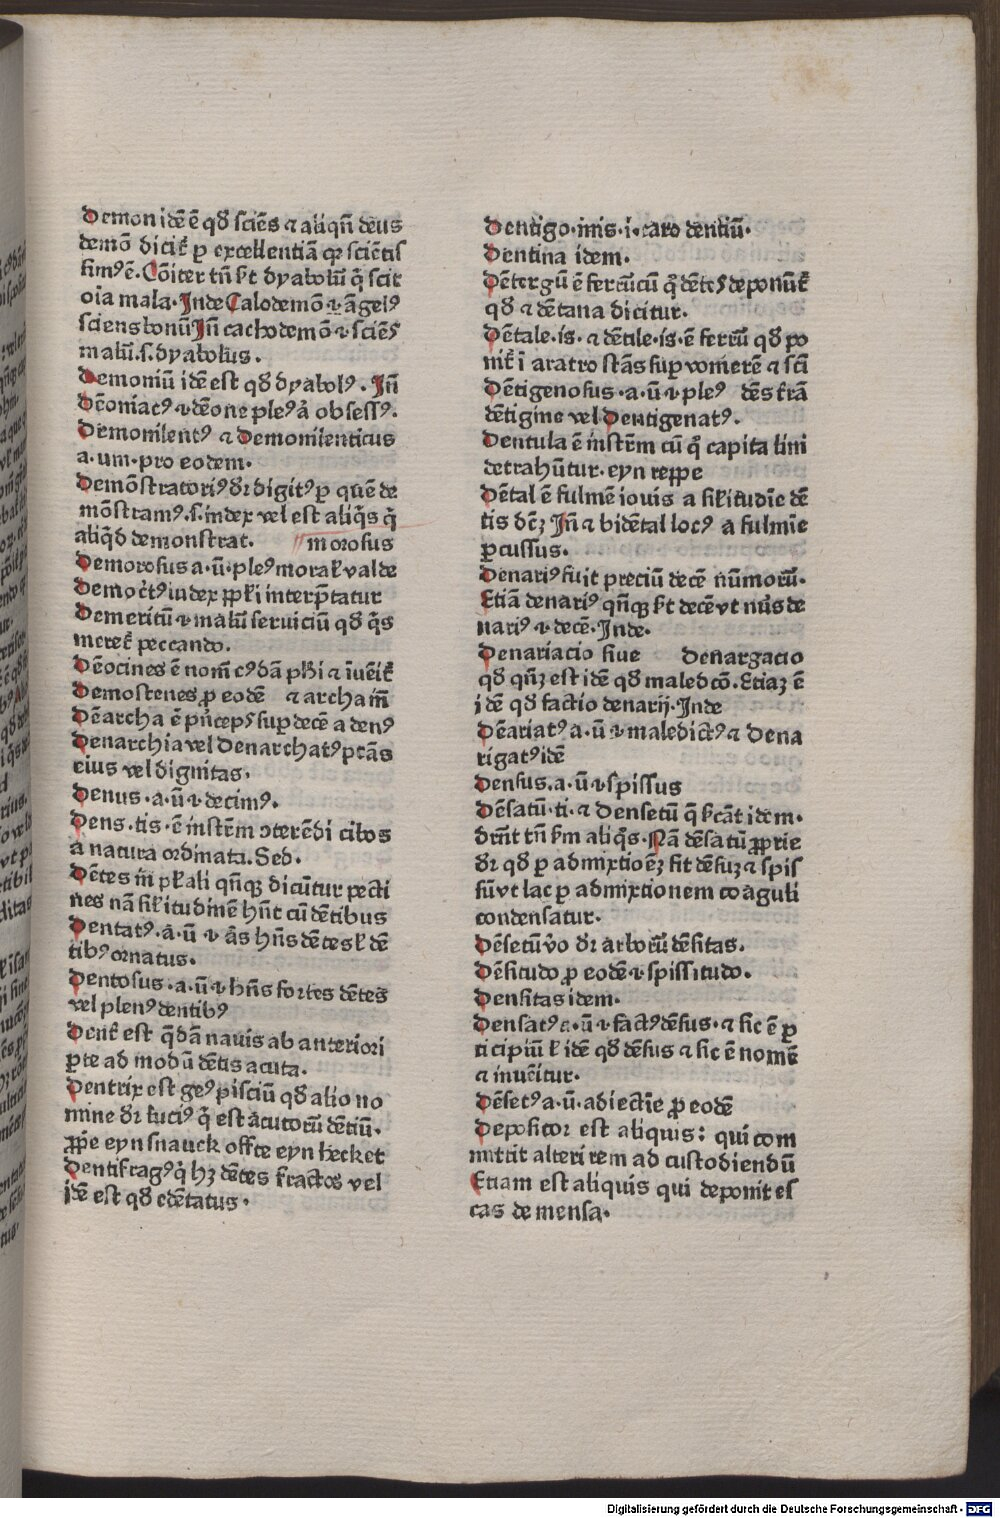 Demon idē ē qđ sciēs ⁊ aliqñ deus
demō dicit̉ ꝑ excellentiā qꝛ sciētis
simꝰ ē. Cōiter tñ ł̵t dyabolū q̇ scit
oīa mala. Inde Calodemō .i. āgelꝰ
sciens bonū Iñ cachodemō .i. sciēs
malū .s. dyabolus.
Demoniū idē est qđ dyabolꝰ. Iñ
Dēoniacꝰ .i. dēone pleꝰ ł obsessꝰ.
Demonilentꝰ ⁊ Demonilenticus
a. um. pro eodem.
Demōstratoriꝰ dr̄ digitꝰ ꝑ quē de
mōstramꝰ .s. index vel est aliq̇s q̇
aliqđ demonstrat. morosus
Demorosus a. ū. pleꝰ moral̉ valde
Democ̄tꝰ iudex ppl̉i interp̄tatur
Demeritū .i. malū seruiciū qđ q̇s
meret̉ peccando.
Dēocines ē nom̄ cꝰdā pħi ⁊ īuēit̉
Demostenes ꝓ eodē ⁊ archa in̄
Dēarcha ē pn̄cepꝰ suꝑ decē a denꝰ
Denarchia vel Denarchatꝰ ptās
eius vel dignitas.
Denus .a. ū .i. decimꝰ.
Dens .tis. ē instr̄m ↄterēdi cibos
a natura ordinata. Sed.
Dētes in̄ pl̉ali qñqꝫ dicūtur pecti
nes nā sil̉itudinē hn̄t cū dētibus
Dentatꝰ .a. ū .i. ās hn̄s dētes ł dē
tibꝰ ornatus.
Dentosus .a. ū .i. hn̄s fortes dētes
vel plenꝰ dentibꝰ
Dent̉ est q̄dā nauis ab anteriori
ꝑte ad modū dētis acuta.
Dentrix est geꝰ pisciū qđ alio no
mine dr̄ luciꝰ q̇ est acutorū dētiū.
ꝓp̄e eyn snauck offte eyn hecket
Dentifragꝰ q̇ hꝫ dētes fractos vel
idē est qđ edētatus.
Dentigo. inis. i. caro dentiū.
Dentina idem.
Dētergū ē ferrūcū q̊ dētes deponūt̉
qđ ⁊ dētana dicitur.
Dētale. is. ⁊ dētile. is. ē ferrū qđ po
nit̉ ī aratro stās suꝑ vomerē ⁊ sci
Dētigenosus .a. ū .i. pleꝰ dēs frā
dētigine vel Dentigenatꝰ.
Dentula ē instr̄m cū q̊ capita lini
detrahūtur. eyn reppe
Dētal ē fulmē iouis a sil̉itudīe dē
tis dēꝫ Iñ ⁊ bidētal locꝰ a fulmīe
ꝑcussus.
Denariꝰ fuit preciū decē nūmorū.
Etiā denariꝰ qñqꝫ ł̵t decē vt nūs de
nariꝰ .i. decē. Inde.
Denariacio siue Denargacio
qđ qñꝫ est idē qđ maledcō. Etiaꝫ ē
idē qđ factio denarij. Inde
Dēariatꝰ a. ū .i. maledictꝰ ⁊ Dena
rigatꝰ idē
Densus .a. ū .i. spissus
Dēsatū. ti. ⁊ Densetū q̄ ł̵cāt idem.
drn̄t tn̄ ł̵m aliq̇s. Nā dēsatū ꝓprie
dr̄ qđ ꝑ admixtioēꝫ fit dēsuꝫ ⁊ spis
sū vt lac ꝑ admixtionem coaguli
condensatur.
Dēsetū v̊o dr̄ arborū dēsitas.
Dēsitudo ꝓ eodē .i. spissitudo.
Densitas idem.
Densatꝰ a. ū .i. factꝰ dēsus. ⁊ sic ē ꝑ
ticipiū ł idē qđ dēsus ⁊ sic ē nomē
⁊ inuēitur.
Dēsetꝰ a. ū. adiectīe ꝓ eodē
Depositor est aliquis: qui com
mittit alteri rem ad custodiendū
Etiam est aliquis qui deponit es
cas de mensa.
Digitalisierung gefördert durch die Deutsche Forschungsgemeinschaft - DFG